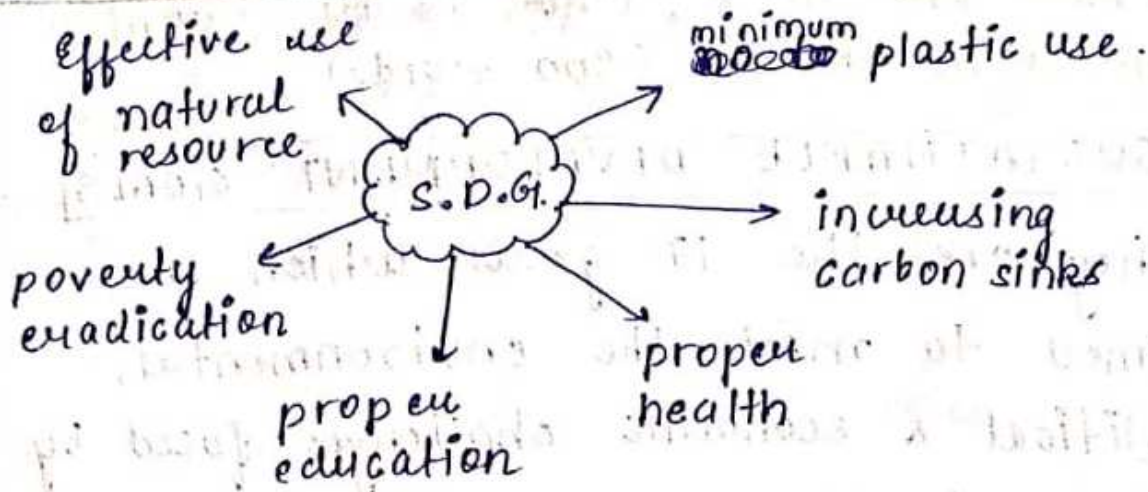 Effective use
of natural
resource
minimum
plastic use.
S.D.G.
increasing
carbon sinks
poverty
eradication
proper
health
proper
education